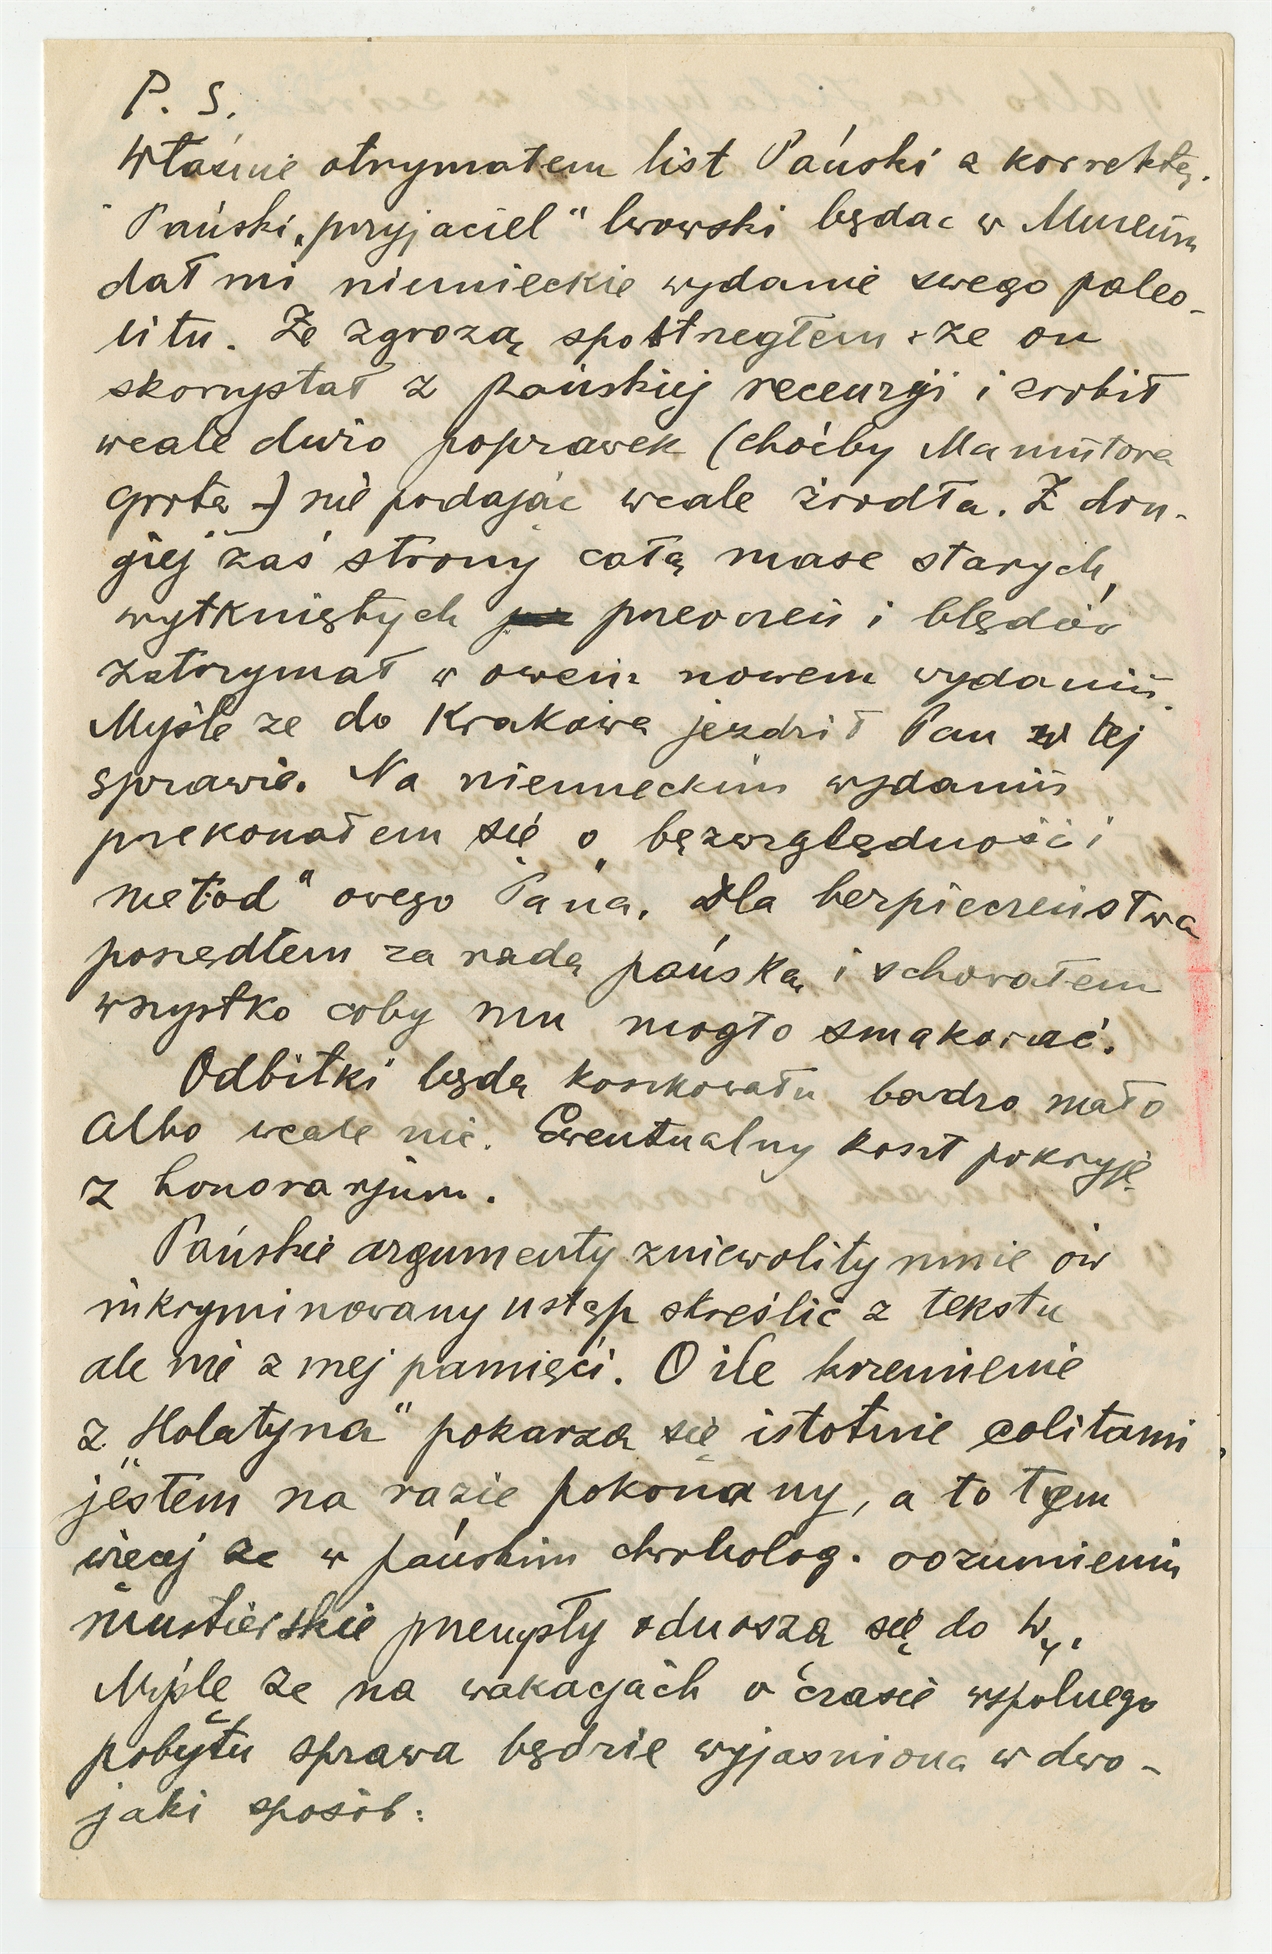 P. S.
Właśnie otrzymałem list Pański z korrektą.
Pański „przyjaciel" lwowski będąc w Muzeum
dał mi niemieckie wydanie swego paleo-
litu. Ze zgrozą spostrzegłem że on
skorzystał z pańskiej recenzji i zrobił
wcale dużo poprawek (choćby Mamutowa
grota) nie podając wcale źrodła. Z dru-
giej zaś strony całą mase starych,
wytkniętych przeoczeń i błędów
zatrzymał w owem nowem wydaniu.
Myśle ze do Krakowa jeździł Pan w tej
sprawie. Na niemieckim wydaniu
przekonałem się o „bezwzględności
metod" owego Pana. Dla bezpieczeństwa
poszedłem za radą pańską i schowałem
wszystko coby mu mogło smakować.
Odbitki będą kosztowały bardzo mało
albo wcale nic. Ewentualny koszt pokryję
z honorarjum.
Pańskie argumenty zniewoliły mnie ów
inkryminowany ustęp skreślić z tekstu
ale nie z mej pamięci. O ile krzemienie
z „Holatyna" pokarzą się istotnie eolitami,
jestem na razie pokonany, a to tem
więcej ze w pańskim chrholog. rozumieniu
mustierskie przemysły odnoszą się do W
Myśle ze na wakacjach o czasie wspolnego
pobytu sprawa będzie wyjasniona w dwo-
jaki sposób: